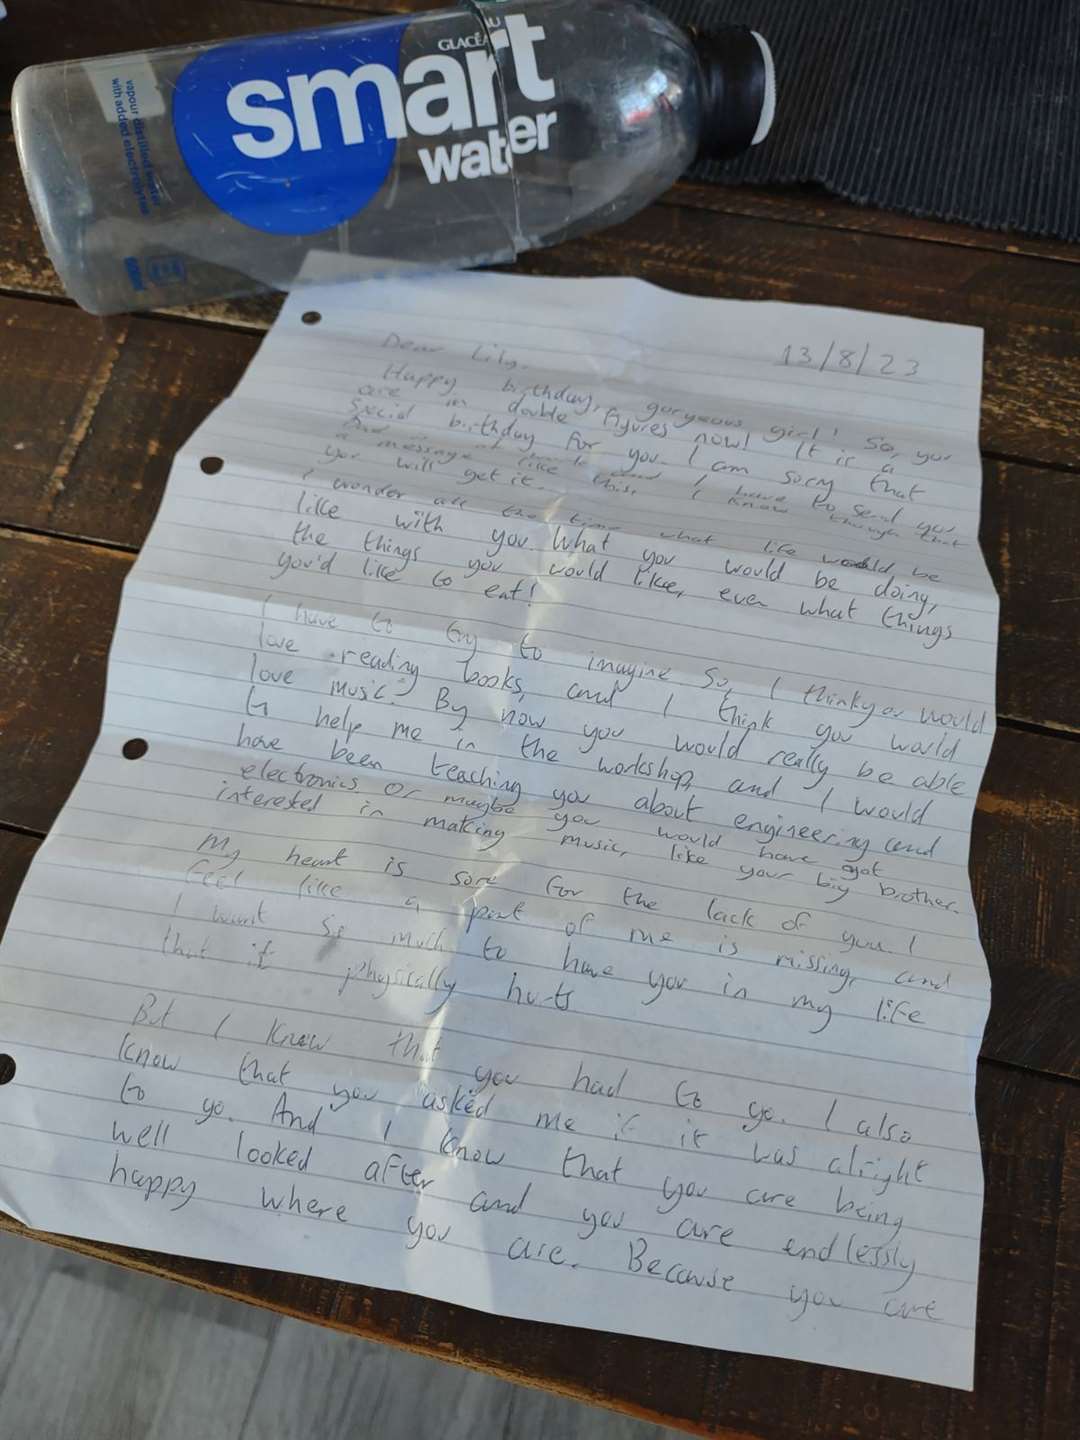 GLACÉAU
smart
water
vapour distilled water
with added electrolytes
13/8/23
Dear Lily,
Happy birthday, gorgeous girl! So, you
are in double figures now! It is a
Special birthday for you. I am sorry that
I have to send you
a message like this, I know though that
you will get it.
I wonder all the time what life would be
like with you. What you would be doing,
the things you would like, even what things
you'd like to eat!
I have to try to imagine. So, I think you would
love reading books, and I think you would
love music. By now you would really be able
to help me in the workshop, and I would
have been teaching you about engineering and
electronics. Or maybe you would have got
interested in making music, like your big brother.
My heart is sore for the lack of you. I
feel like a part of me is missing, and
I want so much to have you in my life
that it physically hurts
But I know that you had to go. I also
know that you asked me if it was alright
to go. And I know that you are being
well looked after and you are endlessly
happy where you are. Because you are